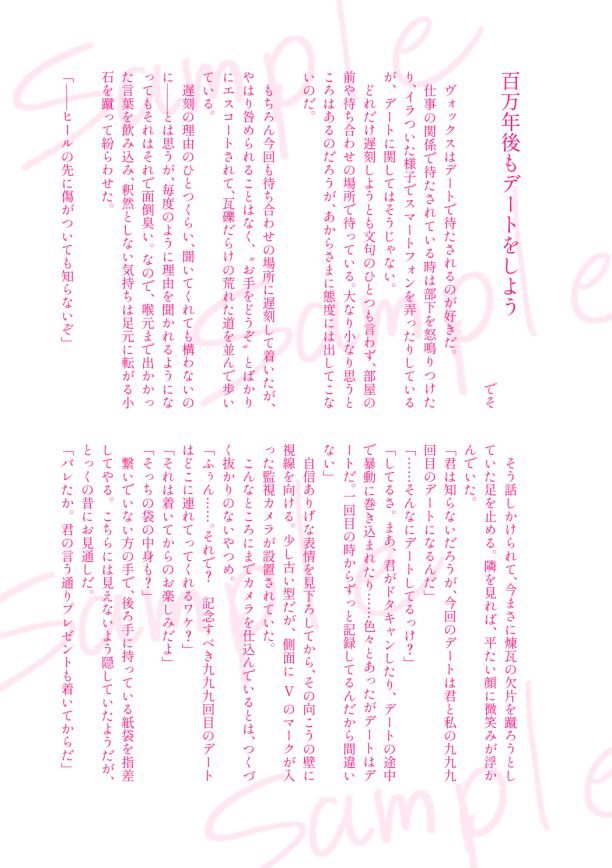 百万年後もデートをしよう
でそ
ヴォックスはデートで待たされるのが好きだ。
仕事の関係で待たされている時は部下を怒鳴りつけた
り、イラついた様子でスマートフォンを弄ったりしている
が、デートに関してはそうじゃない。
どれだけ遅刻しようとも文句のひとつも言わず、部屋の
前や待ち合わせの場所で待っている。大なり小なり思うと
ころはあるのだろうが、あからさまに態度には出してこな
いのだ。
もちろん今回も待ち合わせの場所に遅刻して着いたが、
やはり咎められることはなく、〝お手をどうぞ〟とばかり
にエスコートされて、瓦礫だらけの荒れた道を並んで歩い
ている。
遅刻の理由のひとつくらい、聞いてくれても構わないの
に――とは思うが、毎度のように理由を聞かれるようにな
ってもそれはそれで面倒臭い。なので、喉元まで出かかっ
た言葉を飲み込み、釈然としない気持ちは足元に転がる小
石を蹴って紛らわせた。
「――ヒールの先に傷がついても知らないぞ」
そう話しかけられて、今まさに煉瓦の欠片を蹴ろうとし
ていた足を止める。隣を見れば、平たい顔に微笑みが浮か
んでいた。
「君は知らないだろうが、今回のデートは君と私の九九九
回目のデートになるんだ」
「……そんなにデートしてるっけ？」
「してるさ。まあ、君がドタキャンしたり、デートの途中
で暴動に巻き込まれたり……色々とあったがデートはデ
ートだ。一回目の時からずっと記録してるんだから間違い
ない」
自信ありげな表情を見下ろしてから、その向こうの壁に
視線を向ける。少し古い型だが、側面に V のマークが入
った監視カメラが設置されていた。
こんなところにまでカメラを仕込んでいるとは、つくづ
く抜かりのないやつめ。
「ふぅん……。それで？　記念すべき九九九回目のデート
はどこに連れてってくれるワケ？」
「それは着いてからのお楽しみだよ」
「そっちの袋の中身も？」
繋いでいない方の手で、後ろ手に持っている紙袋を指差
してやる。こちらには見えないよう隠していたようだが、
とっくの昔にお見通しだ。
「バレたか。君の言う通りプレゼントも着いてからだ」
Sample
Sample
Sample
Sample
Sample